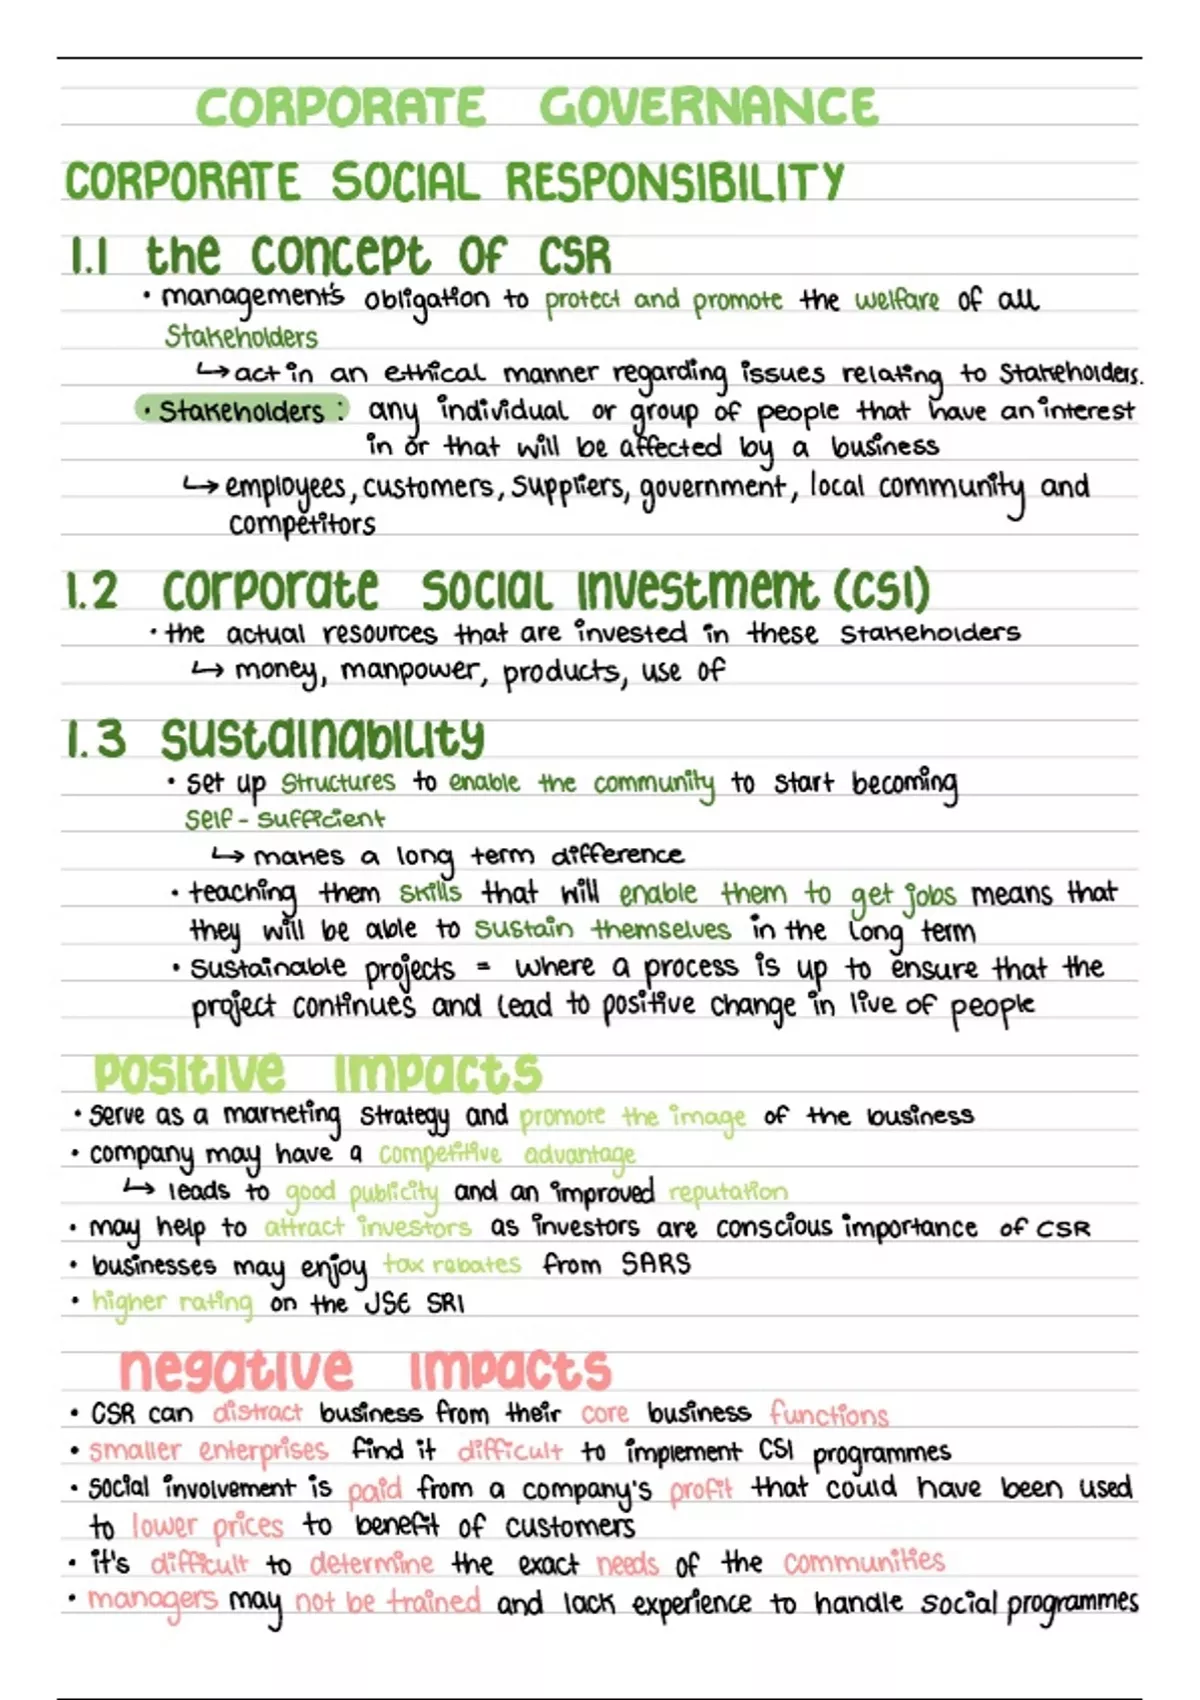 CORPORATE GOVERNANCE
CORPORATE SOCIAL RESPONSIBILITY
1.1 the concept of CSR
• management's obligation to protect and promote the welfare of all
Stakeholders
↳ act in an ethical manner regarding issues relating to Stakeholders.
• Stakeholders : any individual or group of people that have an interest
in or that will be affected by a business
↳ employees, customers, suppliers, government, local community and
competitors
1.2 Corporate Social Investment (CSI)
• the actual resources that are invested in these stakeholders
↳ money, manpower, products, use of
1.3 Sustainability
• set up structures to enable the community to start becoming
self-sufficient
↳ makes a long term difference
• teaching them skills that will enable them to get jobs means that
they will be able to sustain themselves in the long term
• sustainable projects = where a process is up to ensure that the
project continues and lead to positive change in live of people
positive impacts
• serve as a marketing strategy and promote the image of the business
• company may have a competitive advantage
↳ leads to good publicity and an improved reputation
• may help to attract investors as investors are conscious importance of CSR
• businesses may enjoy tax rebates from SARS
• higher rating on the JSE SRI
negative impacts
• CSR can distract business from their core business functions
• smaller enterprises find it difficult to implement CSI programmes
• social involvement is paid from a company's profit that could have been used
to lower prices to benefit of customers
• it's difficult to determine the exact needs of the communities
• managers may not be trained and lack experience to handle social programmes